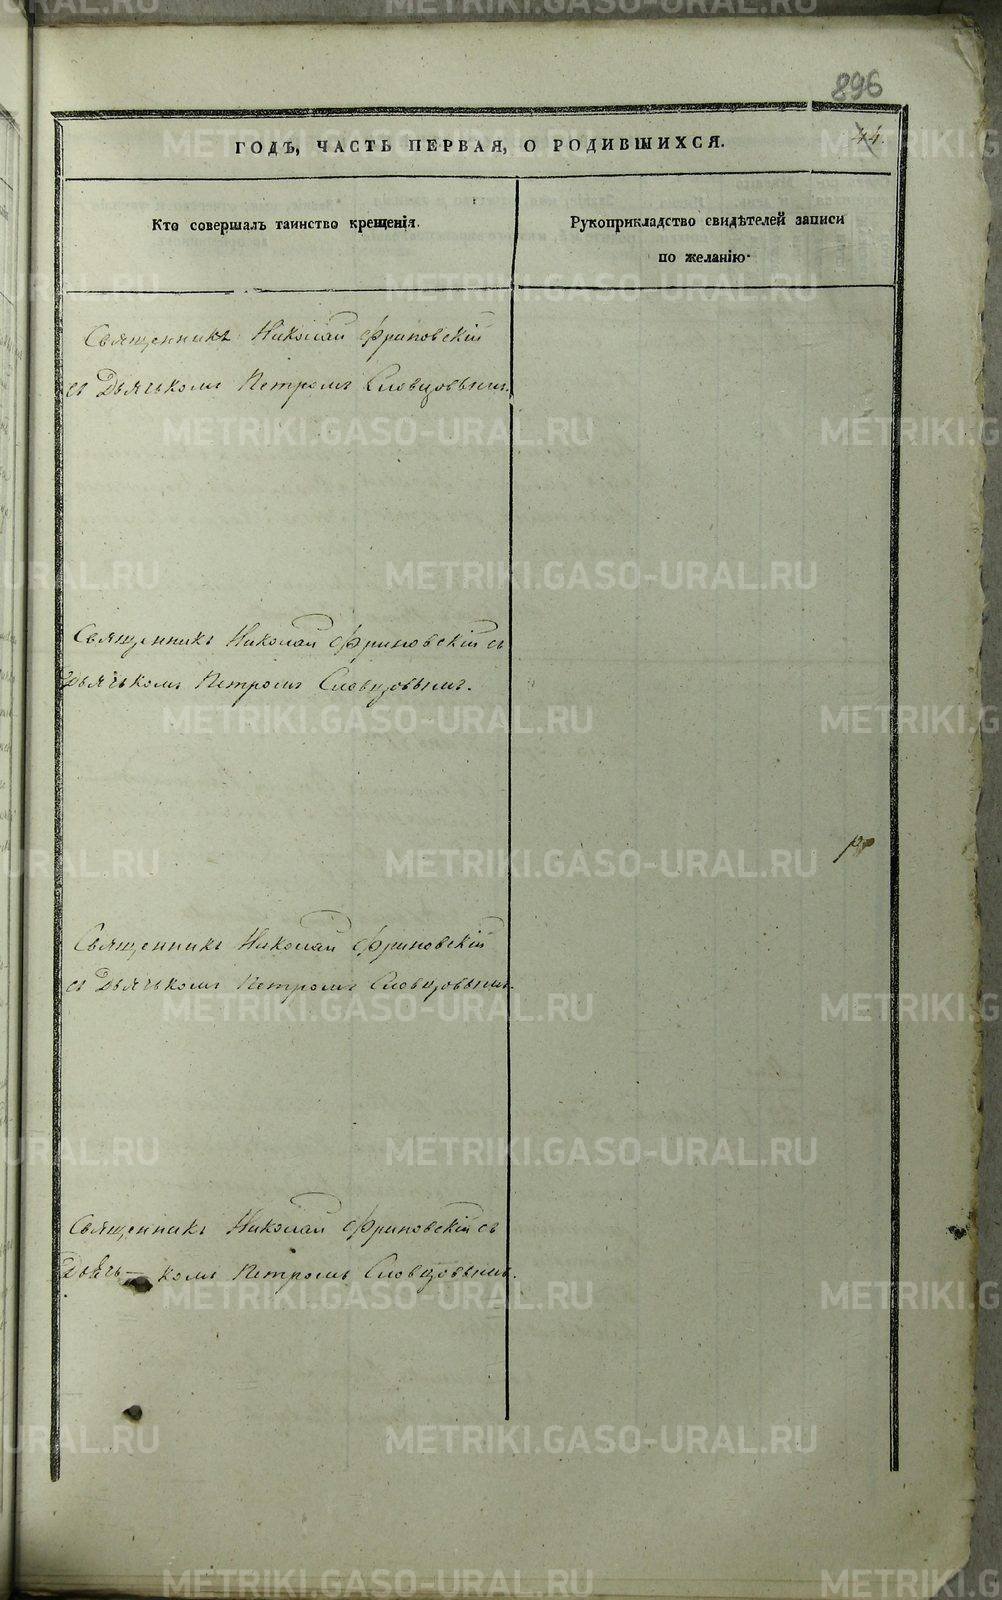 896
44.
ГОДЪ, ЧАСТЬ ПЕРВАЯ, О РОДИВШИХСЯ.
Кто совершалъ таинство крещенія.
Рукоприкладство свидѣтелей записи
по желанію.
Священникъ Николай Фриновскій
съ Дьячькомъ Петромъ Словцовымъ.
Священникъ Николай Фриновскій съ
Дьячькомъ Петромъ Словцовымъ.
Священникъ Николай Фриновскій
съ Дьячькомъ Петромъ Словцовымъ.
Священникъ Николай Фриновскій съ
Дьячь-комъ Петромъ Словцовымъ.
METRIKI.GASO-URAL.RU